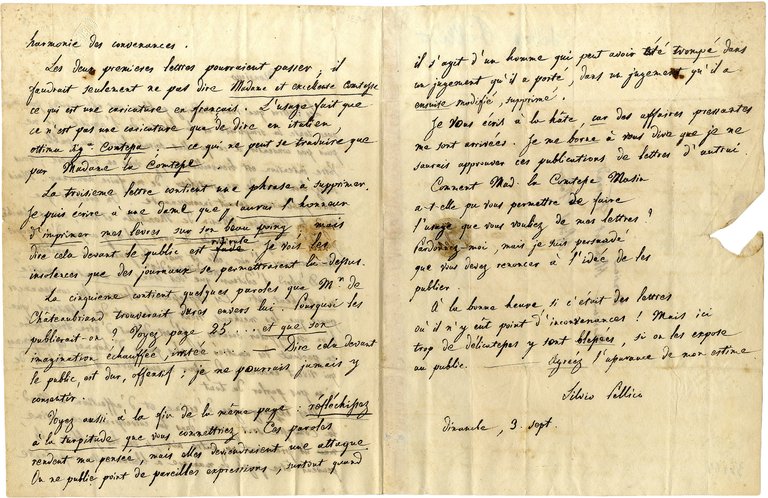 harmonie des convenances.
Les deux premieres lettres pourraient passer; il
faudrait seulement ne pas dire Madame et excellente Comtesse
ce qui est une caricature en français. L'usage fait que
ce n'est pas une caricature que de dire en italien
ottima Sg.ª Contessa; — ce qui ne peut se traduire que
par Madame la Comtesse.
La troisieme lettre contient une phrase à supprimer.
Je puis écrire à une dame que j'aurai l'honneur
d'imprimer mes levres sur son beau poing; mais
dire cela devant le public est ridicule. Je vois les
insolences que des journaux se permettraient là-dessus.
La cinquieme contient quelques paroles que Mr. de
Chateaubriand trouverait dures envers lui. Pourquoi les
publierait-on? Voyez page 25 .... et que son
imagination échauffée, irritée — Dire cela devant
le public, est dur, offensif; je ne pourrais jamais y
consentir.
Voyez aussi à la fin de la même page: réfléchissez
à la turpitude que vous commettriez... Ces paroles
rendent ma pensée, mais elles deviendraient une attaque
On ne publie point de pareilles expressions, surtout quand
il s'agit d'un homme qui peut avoir été trompé dans
un jugement qu'il a porté, dans un jugement qu'il a
ensuite modifié, supprimé.
Je vous écris à la hâte, car des affaires pressantes
me sont arrivées. Je me borne à vous dire que je ne
saurais approuver ces publications de lettres d'autrui.
Comment Mad. la Comtesse Masin
a-t-elle pu vous permettre de faire
l'usage que vous voulez de mes lettres?
Pardonnez-moi, mais je suis persuadé
que vous devez renoncer à l'idée de les
publier.
À la bonne heure si c'était des lettres
où il n'y eut point d'inconvenances! Mais ici
trop de délicatesses y sont blessées, si on les expose
au public. — Agréez l'assurance de mon estime
Silvio Pellico
dimanche, 3. sept.